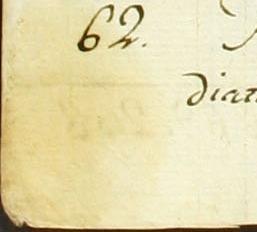 62.
diat